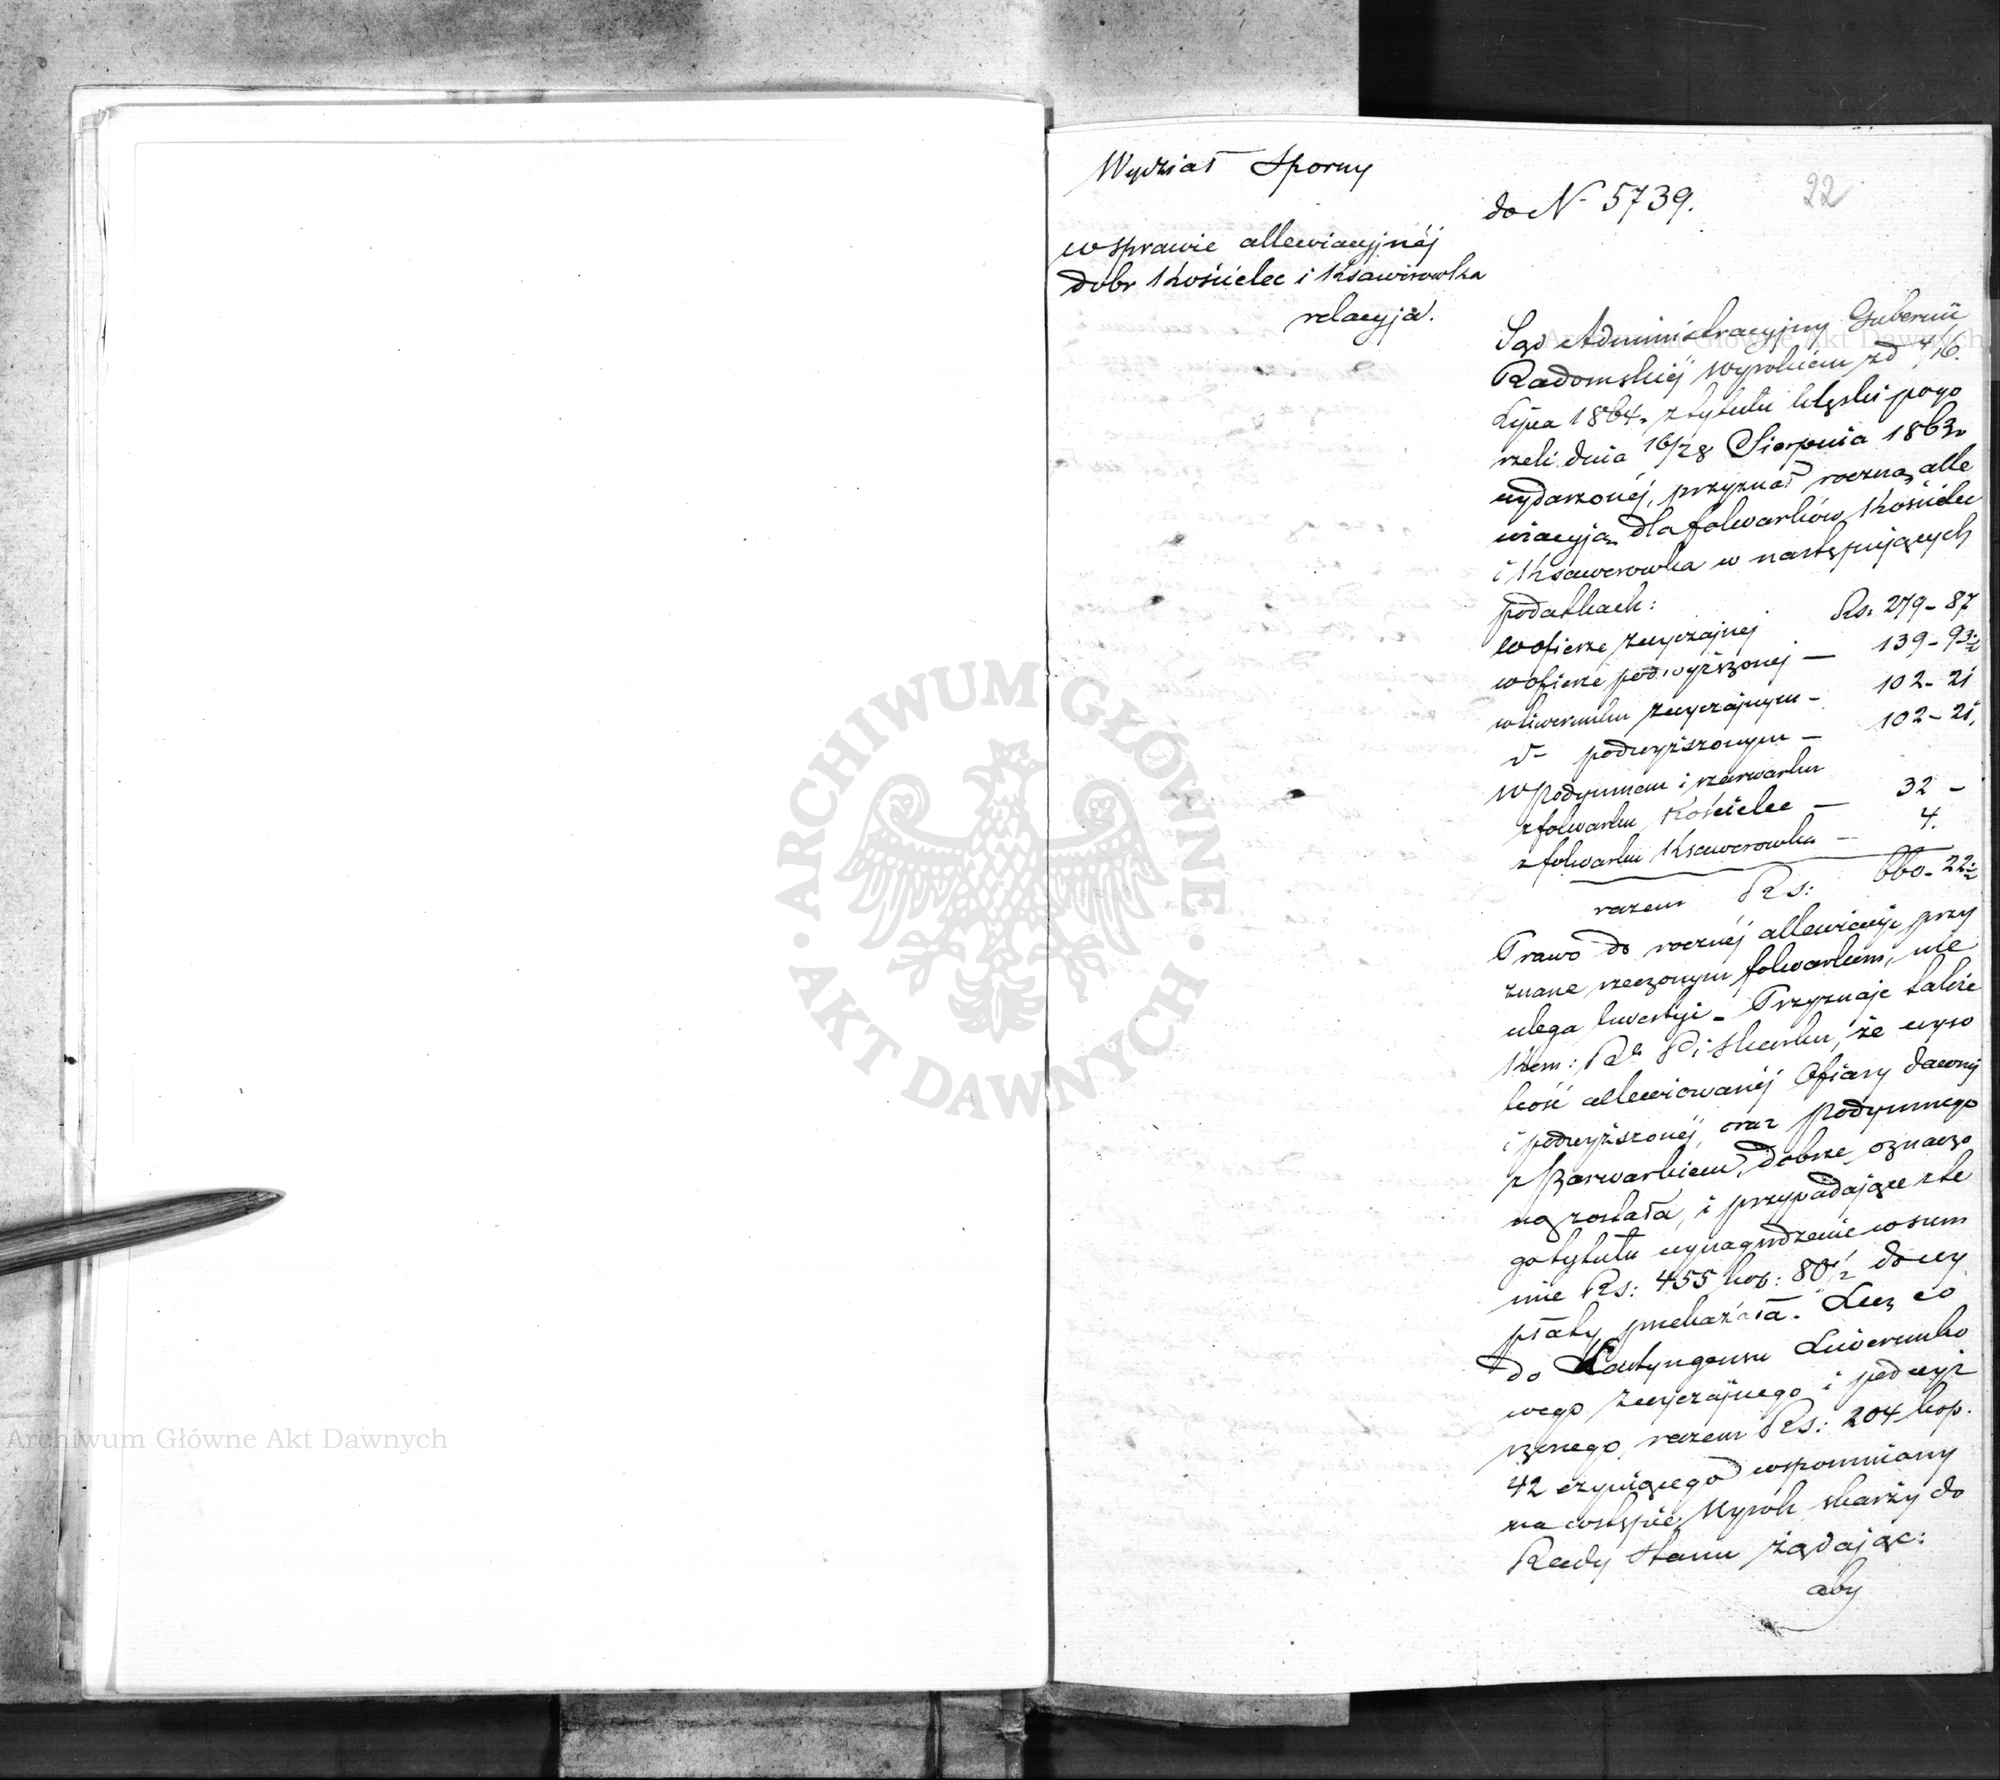 Wydział Sporny
do N. 5739.
22
w sprawie allewiacyjnéj
dóbr Kościelec i Ksawerówka
relacyja.
Sąd Administracyjny Gubernii
Radomskiéj wyrokiem zd 4/16.
Lipca 1864. z tytułu klęski pogo
rzeli dnia 16/28 Sierpnia 1863r
wydarzonéj, przyznał roczną alle
wiacyją dla folwarków Kościelec
i Ksawerowka w następujących
podatkach:
w ofierze zwyczajnej Rs. 279-87
w ofierze podwyższonej — 139-93½
w liwerunku zwyczajnym - 102-21
d- podwyższonym — 102-21,
w Podymnem i szarwarku
z folwarku Kościelec — 32 -
z folwarku Ksawerowka — 4.
razem Rs: 660-22½
Prawo do rocznéj allewiacyi przy
znane rzeczonym folwarkom, nie
ulega kwestyi - Przyznaje także
Kom: Rz P i Skarbu, że wyso
kość allewiowanéj Ofiary dawnéj
i podwyższonéj, oraz podymnego
z Szarwarkiem, dobrze oznaczo
ną została, i przypadające z te
go tytułu wynagrodzenie w sum
mie Rs: 455 kop: 80½ do wy
płaty przekazała. Lecz co
do Kontyngensu Liwerunko
wego zwyczajnego i podwyż
szonego, razem Rs: 204 kop.
42 czyniącego wspomniany
na wstępie Wyrok skarży do
Rady Stanu żądając:
aby
Archiwum Główne Akt Dawnych
Archiwum Główne Akt Dawnych
ARCHIWUM GŁÓWNE AKT DAWNYCH